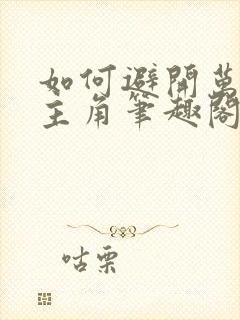 如何避開萬
主角筆趣閣
咕栗